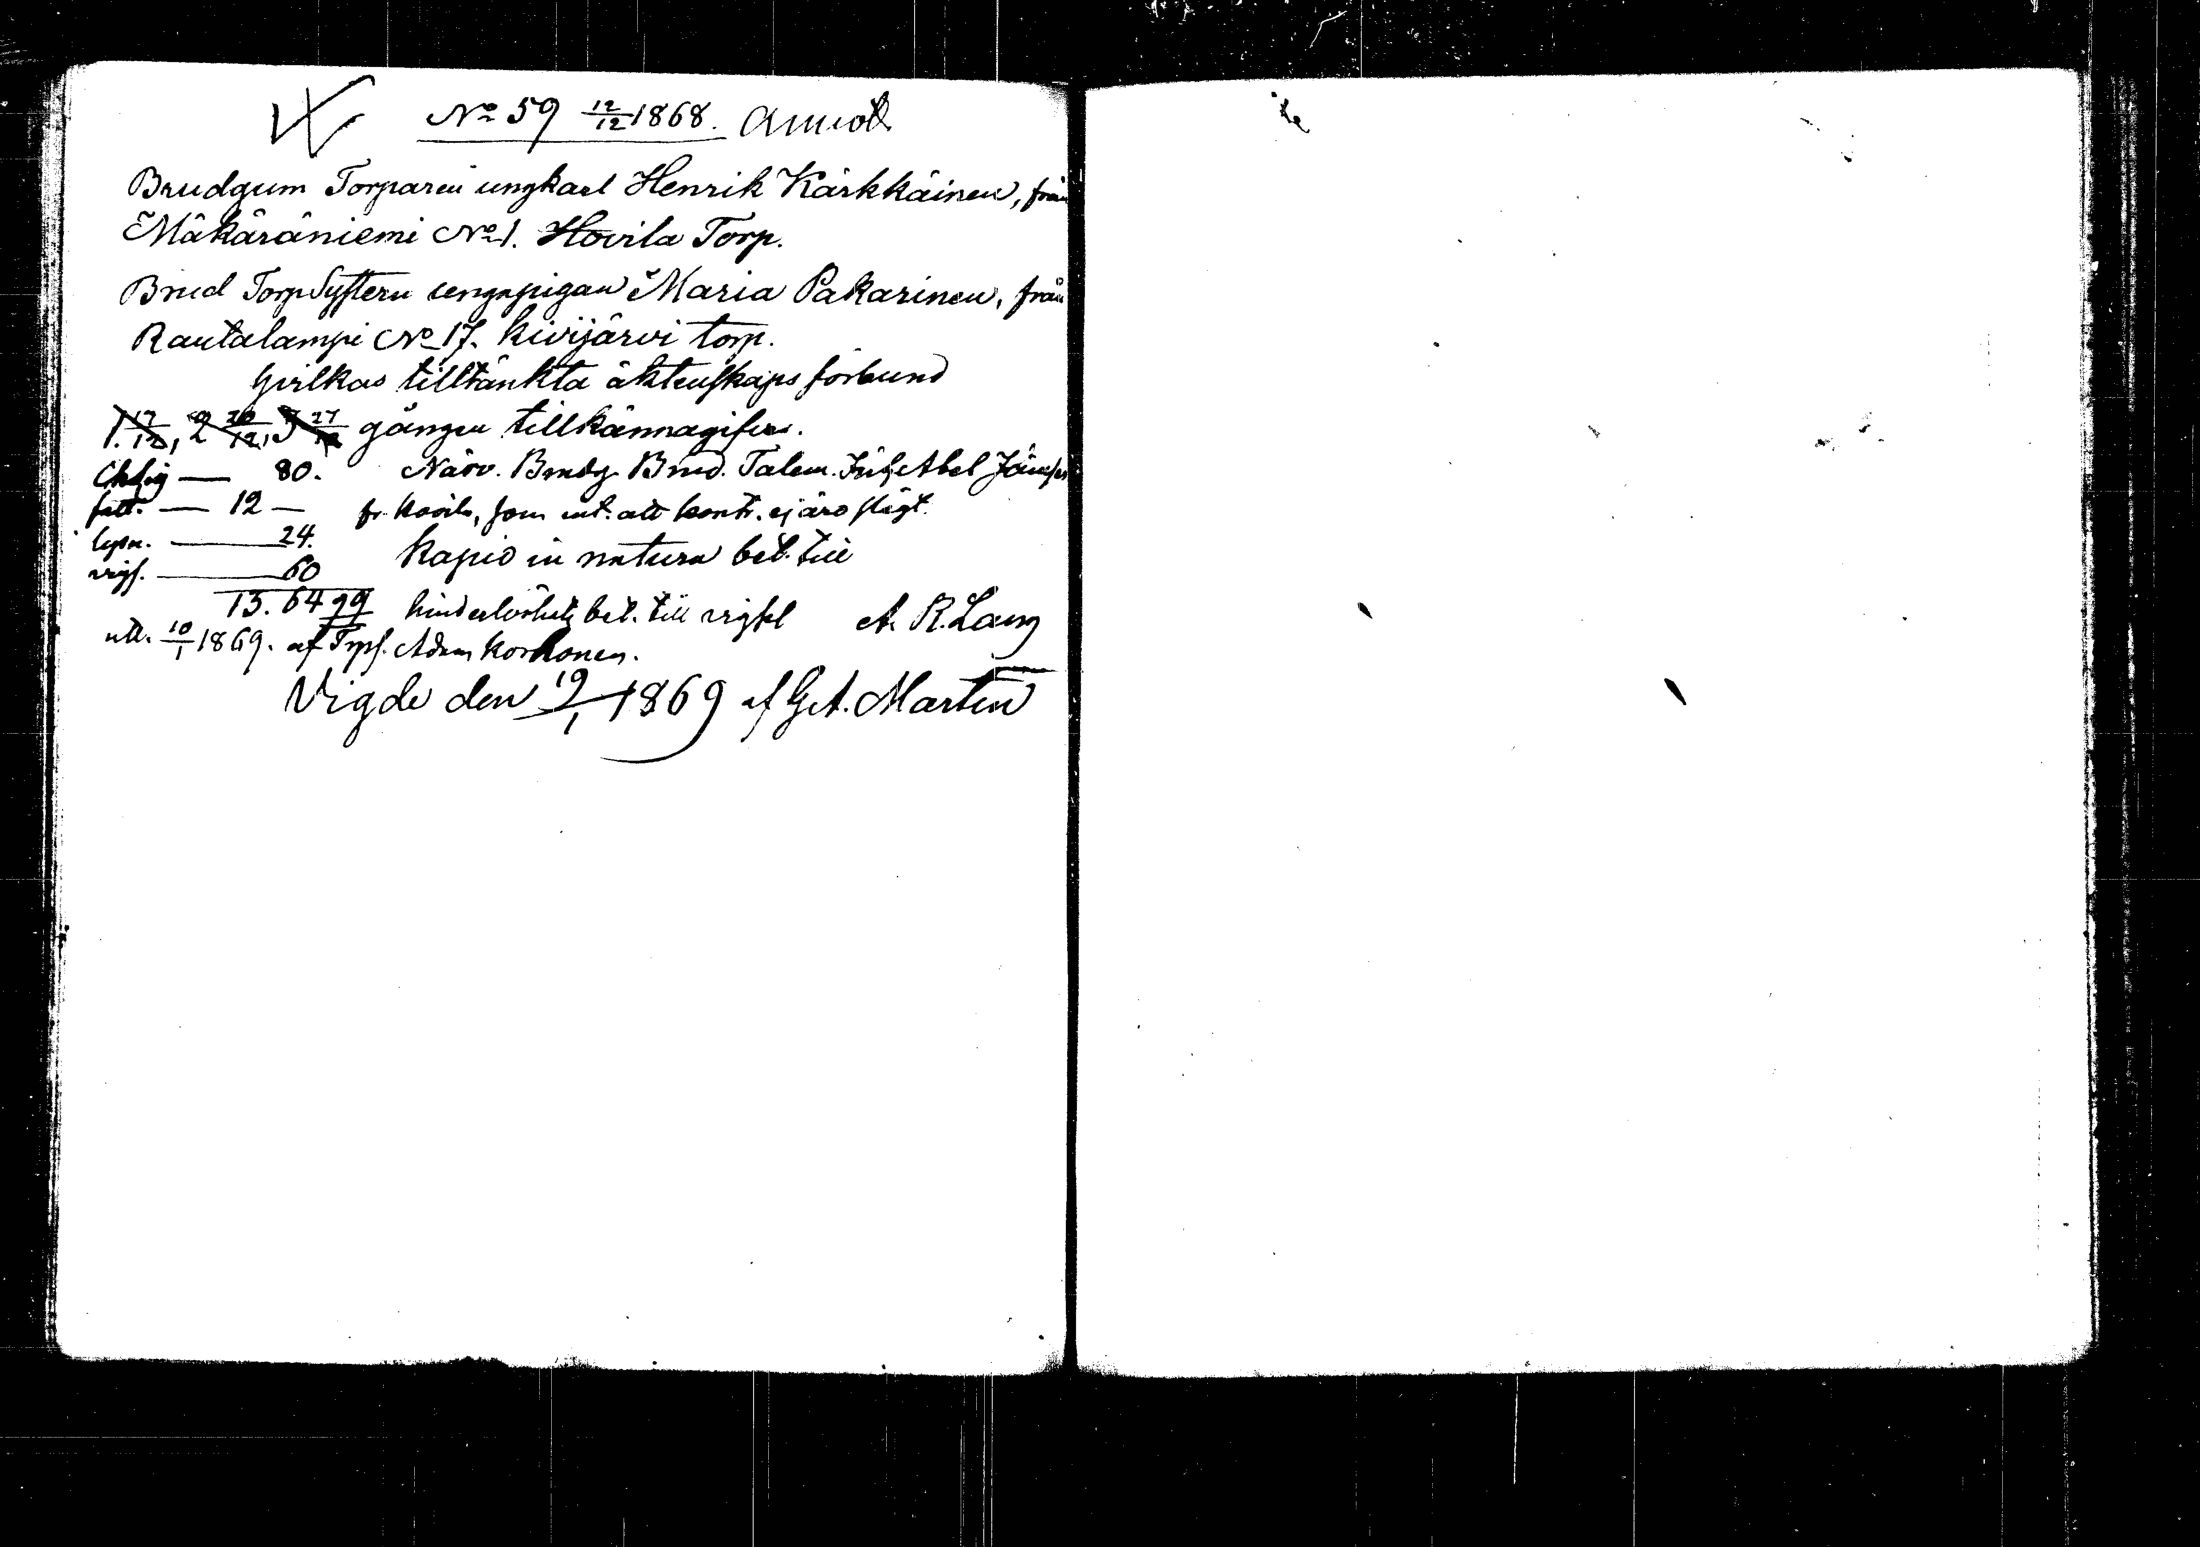 No 59 12/12 1868. Annot
Brudgum Torparen ungkarl Henrik Kärkkäinen, från
Mäkäräniemi No 1. Hovila Torp.
Brud TorpSystern ungpigan Maria Pakarinen, från
Rautalampi No 17. Kivijärvi torp.
hvilkas tilltänkta äktenskaps förbund
1. 17/12, 2 20/12, 3 27/12 gången tillkännagifves.
80. Närv. Brudg. Brud. Talem. Abel
fatt. — 12 — fr. som int. att kontr. ej äro slägt.
lysn. — 24. Kapio in natura bet. till
vigs. — 60
13. 64 hinderlöshets bet. till vigsel A. R. Lang
utt. 10/1 1869. af Adam Korhonen.
Vigde den 19/1 1869 af G. A. Martin